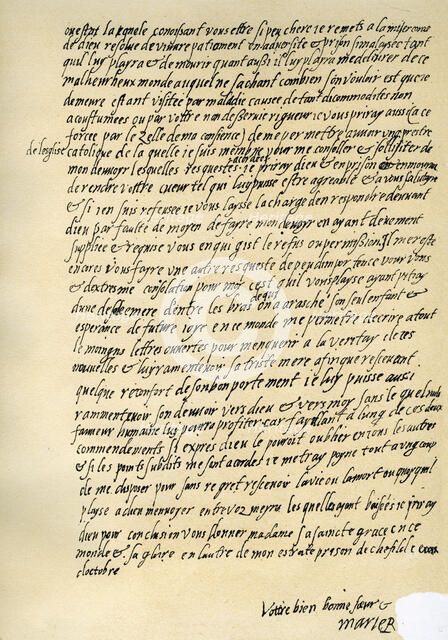 questat laquele conoissant vous estre si peu chere ie remets a la misericorde
de dieu resolue de vivre patiemant en adversite & prison si malaysee tant
quil luy playra & de mourir quant aussi il luy playra me delivrer de ce
malheurheux monde auquel ne sachant combien son vouloir est que ie
demeure estant visitee par maladie causee de tant dicommodites non
acoustumees ou par vottre non desservie rigueur ie vous priray aussi (a ce
forcee par le zelle de ma consience) de me permettre avoir ung prestre
de leglise catolique de la quelle ie suis membre pour me consoller & solisiter de
mon devoyr lesquelles requestes acordees ie priray dieu & en prison & en mourant
de rendre vottre cueur tel qui luy puisse estre agreable & a vous salutayre
& si ien suis refusee ie vous laysse la charge den respondre devant
dieu par faulte de moyen de fayre mon devoyr en ayant deuement
suppliee & requise vous en qui gist le refus ou permission Il me reste
encores vous fayre une autre requeste de peu dimportance pour vous
& dextresme consolation pour moy cest quil vous playse ayant pitay
dune desolee mere dentre les bras de qui on a arasche son seul enfant &
esperance de future ioye en ce monde me permetre decrire a tout
le moingns lettres ouvertes pour menquerir a la veritay de ces
nouvelles & luy ramentevoir sa triste mere afin que resevant
quelque reconfort de son bon portement ie luy puisse aussi
ramentevoir son devoir vers dieu & vers moy sans le quel nulle
faveur humaine luy pourra profiter car fayllant a lung de ces deux
commendements si expres dieu le pourroit oublier en tous les autres
& si les points subdits me sont acordes ie metray poyne tout a ung coup
de me disposer pour sans regret resevoir la vie ou la mort ou quoy quil
playse a dieu menvoyer entre voz meyns lesquelles ayant baisees ie priray
dieu pour conclusion vous donner madame sa saincte grace en ce
monde & sa gloire en lautre de mon estroite prison de chefild ce
doctobre
Vottre bien bonne sœur &
MARIE R